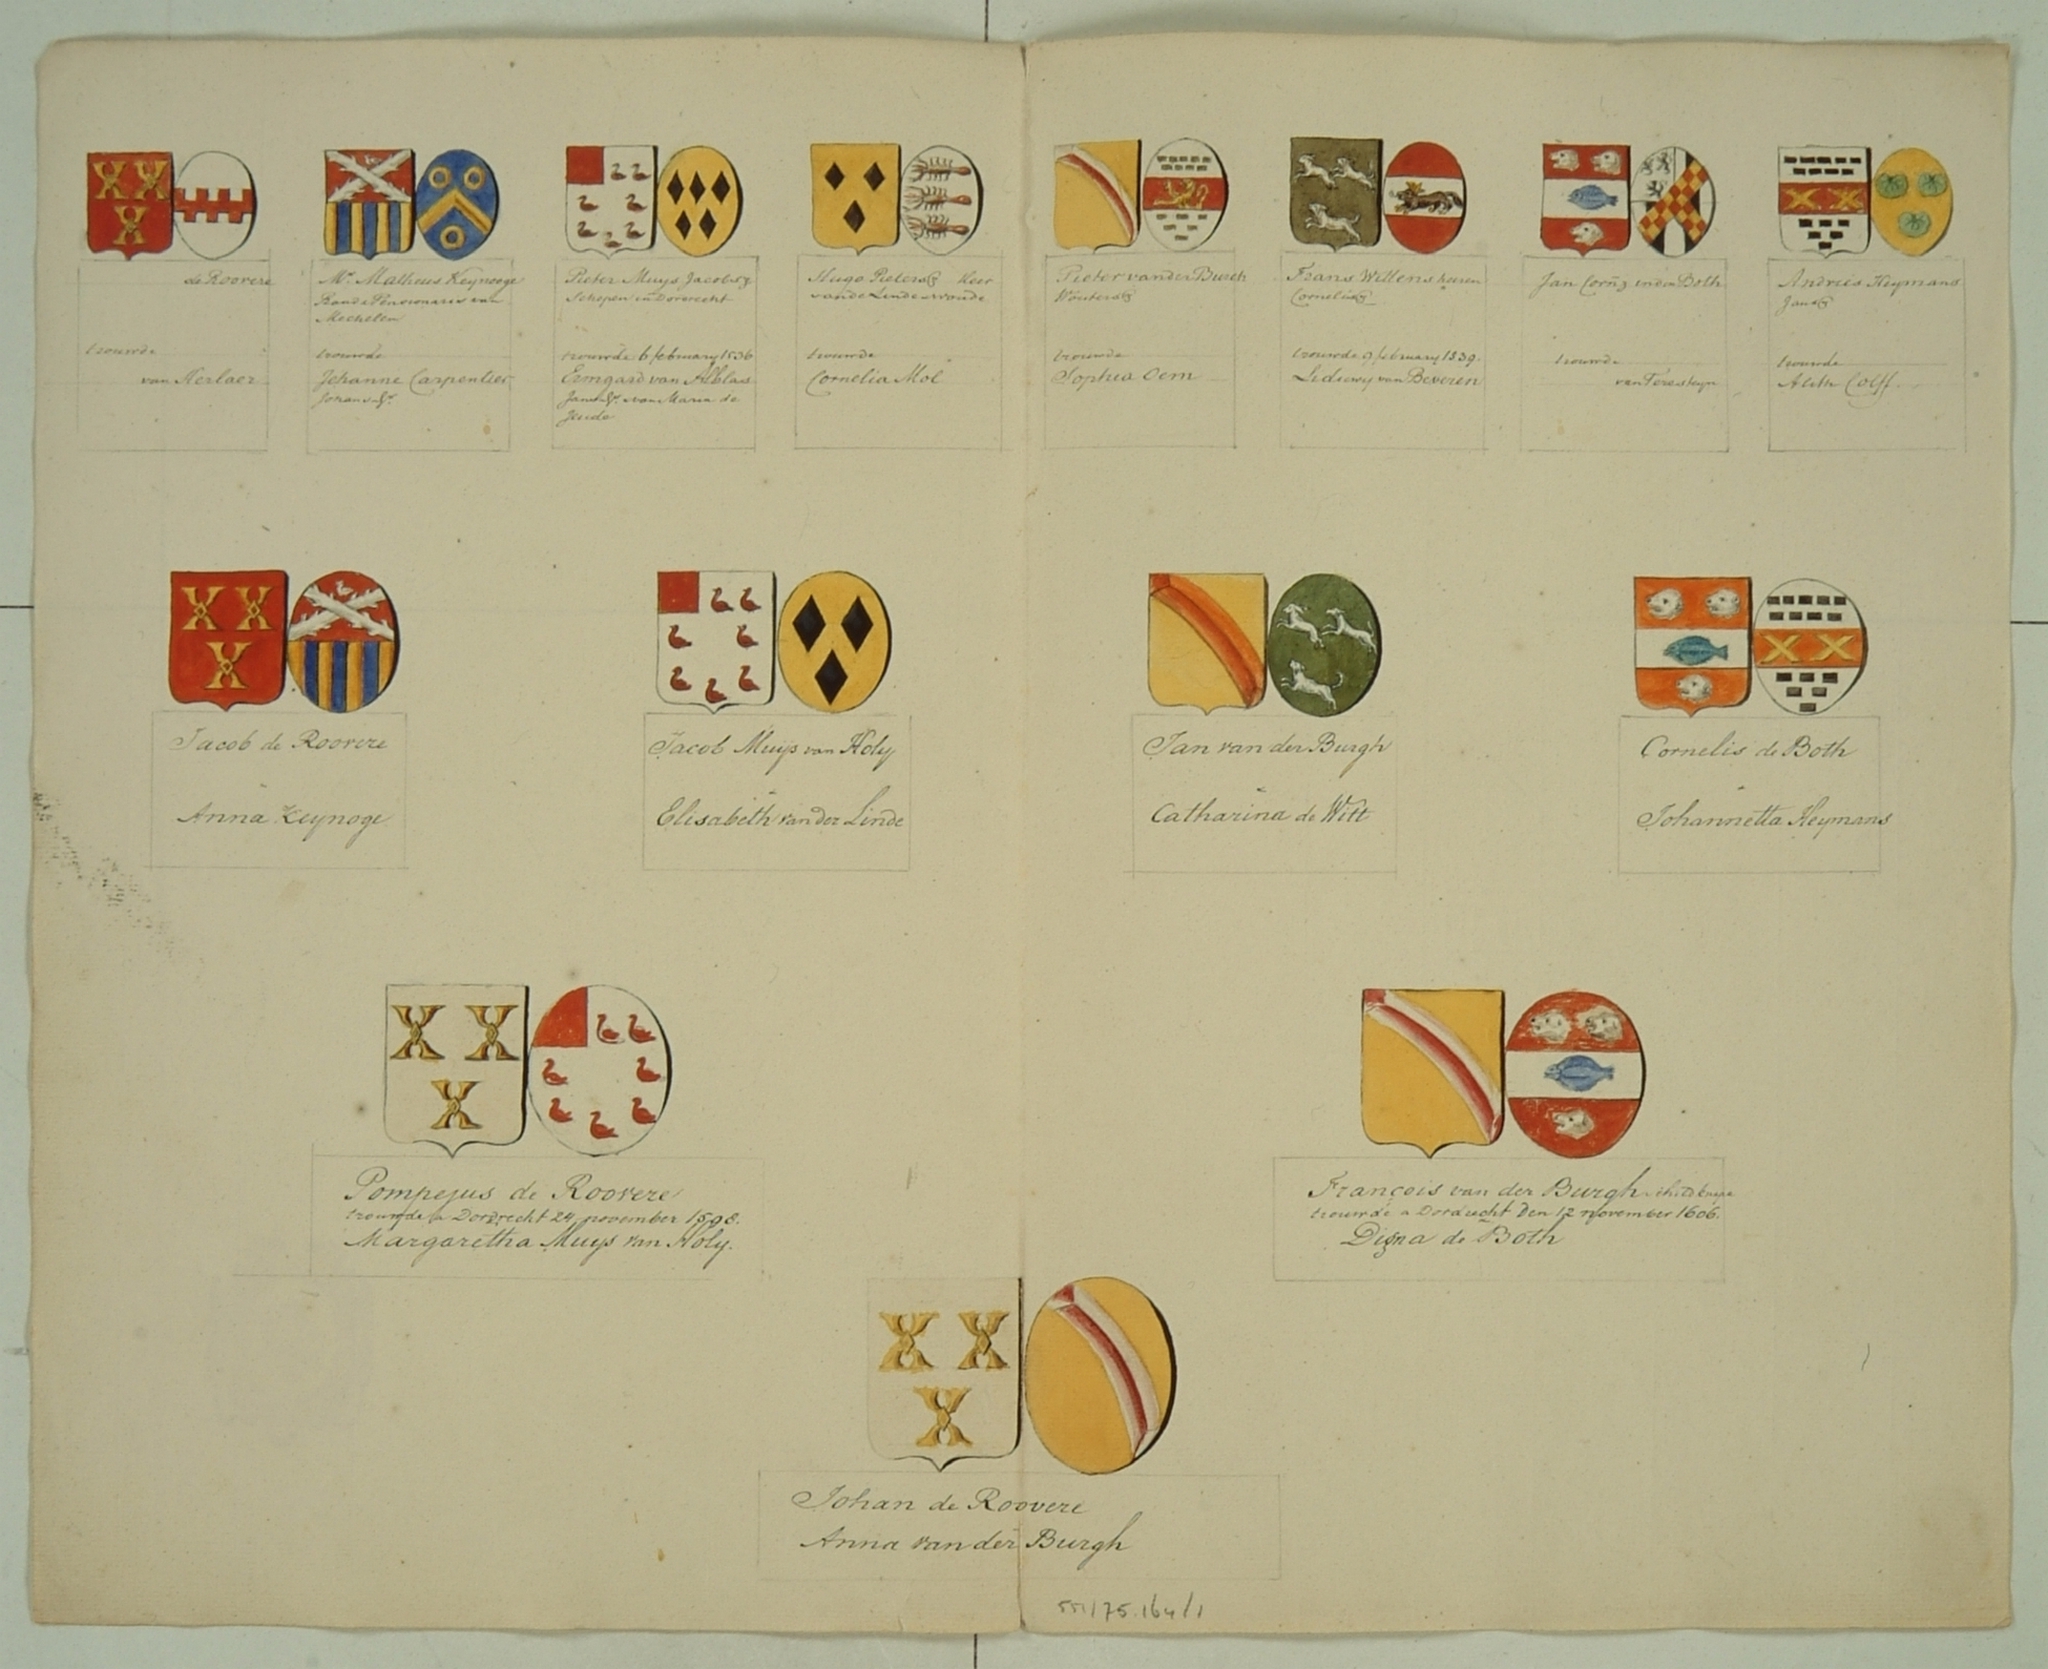 de Roovere
trouwde
van Herlaer
Mr. Matheus Keynooge
Raad & Pensionaris van
Mechelen
trouwde
Jehanne Carpentier
Johans dr.
Pieter Muys Jacobsz
Schepen in Dordrecht
trouwde 6 february 1536
Ermgard van Alblas
Jans dr. van Maria de
Jeude
Hugo Pietersz Heer
van de Lindeswoude
trouwde
Cornelia Mol
Pieter van der Burch
Woutersz
trouwde
Sophia Oem
Frans Willems
Cornelisz
trouwde 9 february 1539.
Lidewy van Beveren
Jan Corn̄z Both
trouwde
van Teresteyn
Andries Heymans
Jansz
trouwde
Aleth Colff
Jacob de Roovere
Anna Keynoge
Jacob Muijs van Holy
Elisabeth van der Linde
Jan van der Burgh
Catharina de Witt
Cornelis de Both
Johannetta Heymans
Pompejus de Roovere
trouwde a Dordrecht 24 november 1598.
Margaretha Muijs van Holy.
François van der Burgh schildknape
trouwde a Dordrecht den 12 november 1606.
Digna de Both
Johan de Roovere
Anna van der Burgh
551/75.164/1